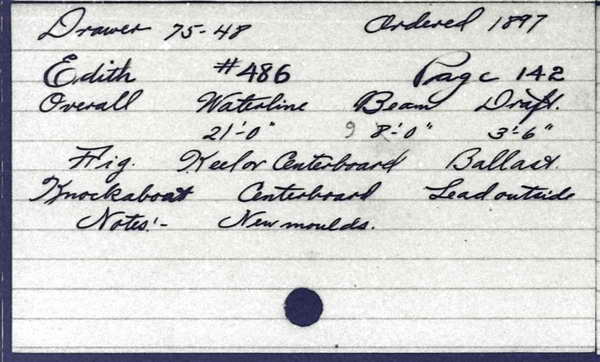 Drawer 75-48 Ordered 1897
Edith #486 Page 142
Overall Waterline Beam Draft.
21'-0" 9 8'-0" 3'-6"
Rig. Keel or Centerboard Ballast.
Knockabout Centerboard Lead outside
Notes:- New moulds.